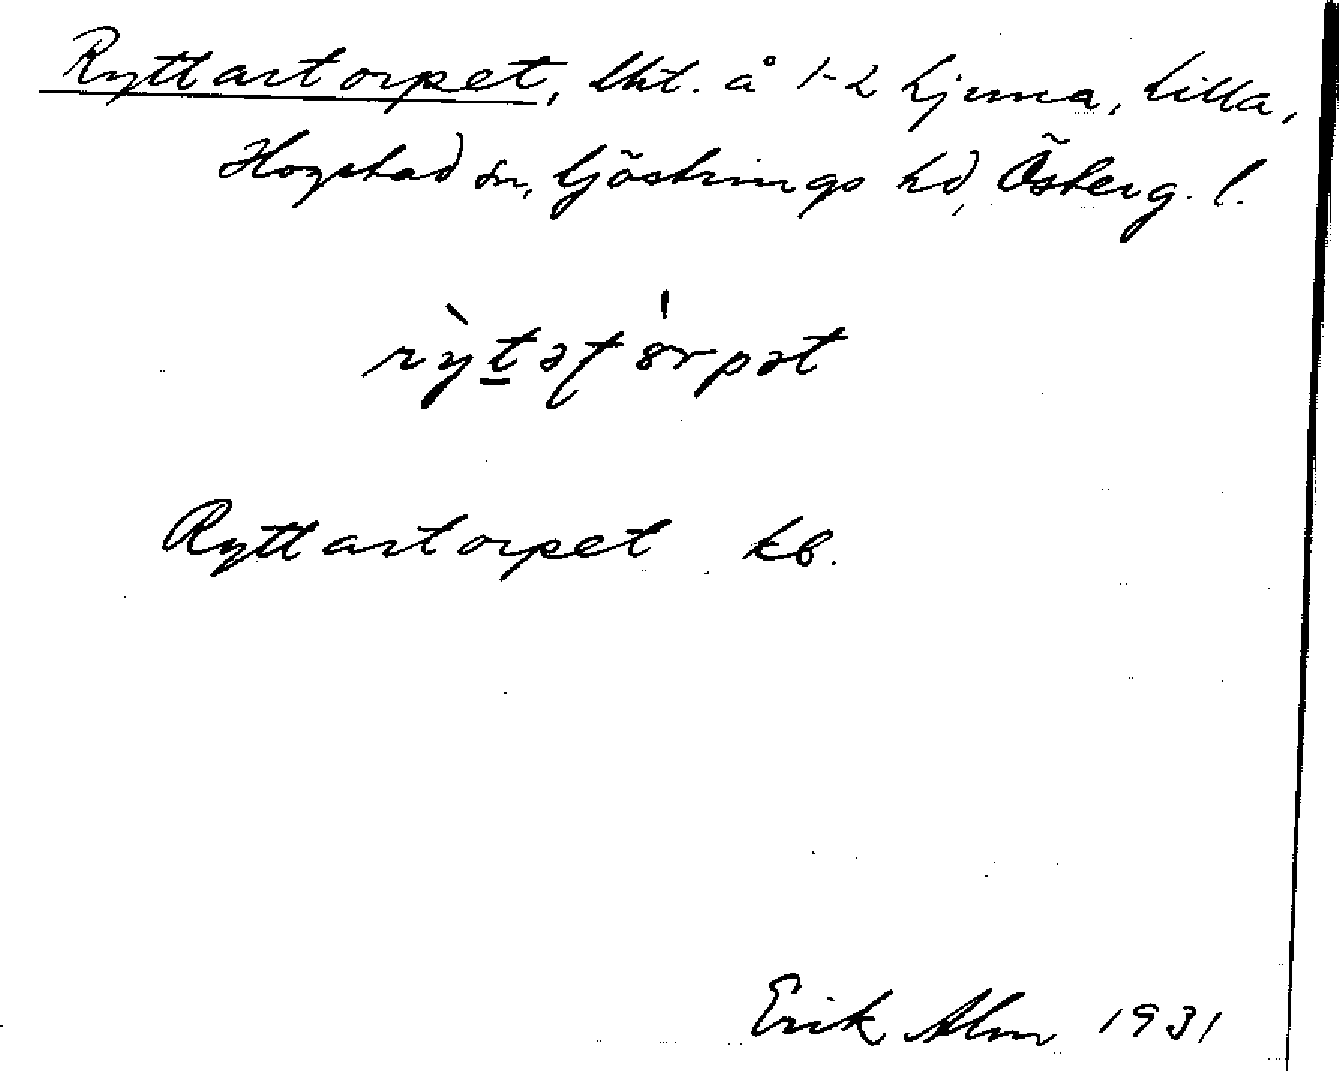 Ryttartorpet, lht. å 1-2 Ljuna, Lilla,
Hogstad sn, Göstrings hd, Österg. l.
rỳtəţ örpət
Ryttartorpet kb.
Erik Alm 1931